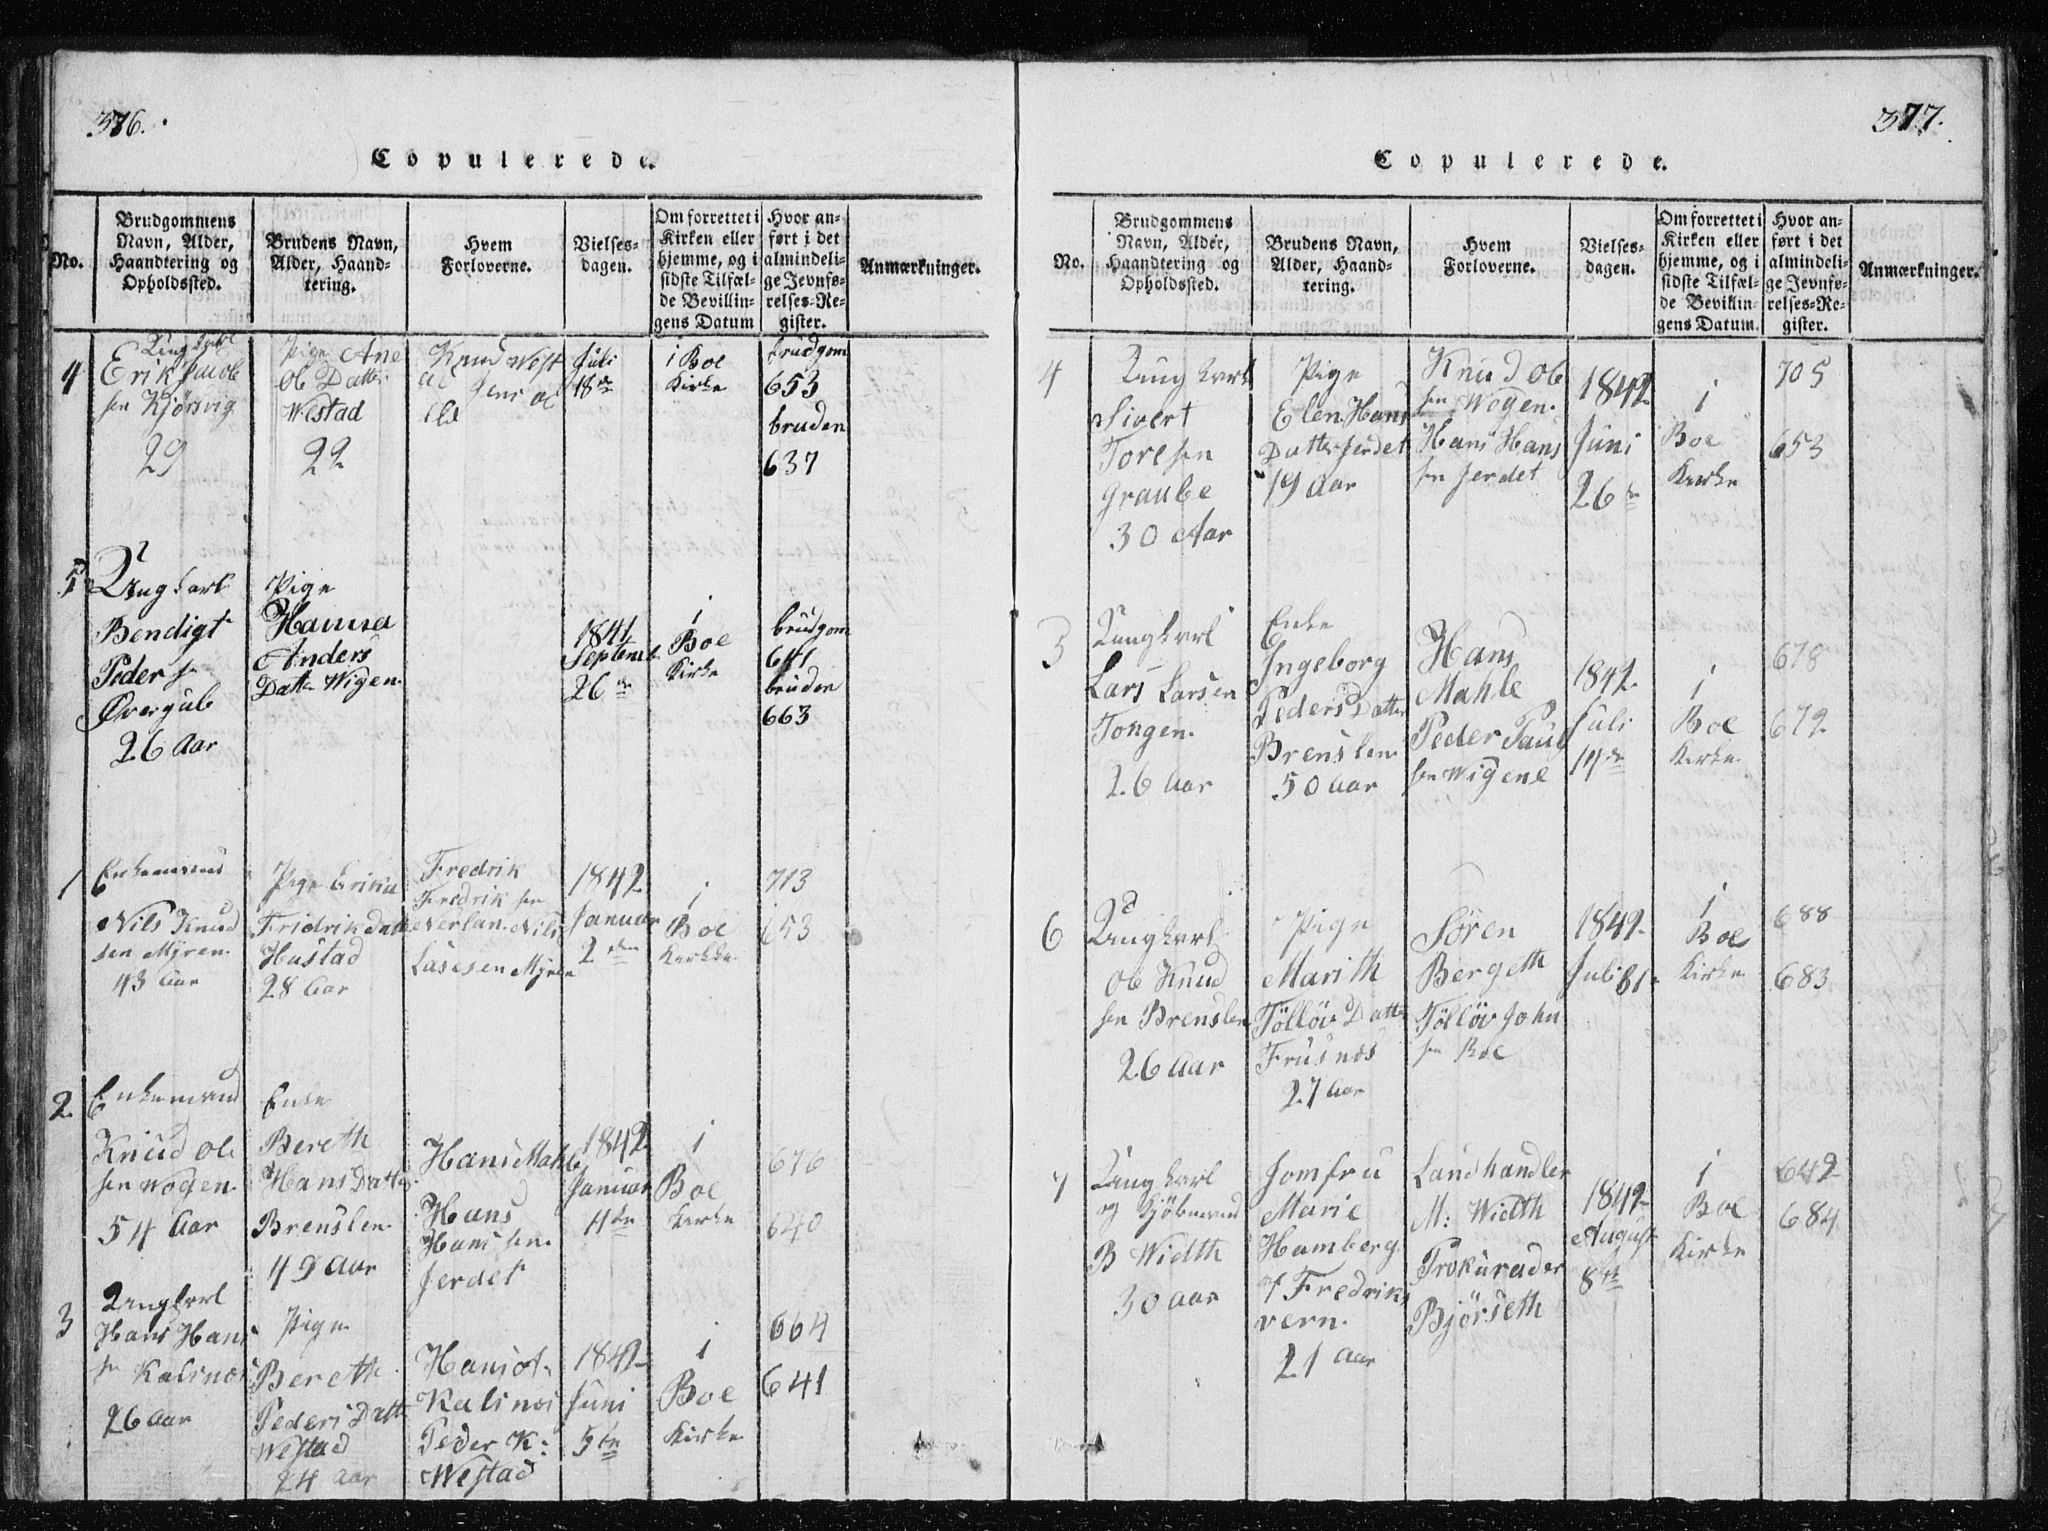 376.
Copulerede.
No.
Brudgommens
Navn, Alder,
Haandtering og
Opholdssted.
Brudens Navn,
Alder, Haand-
tering.
Hvem
Forloverne.
Vielses-
dagen.
Om forrettet i
Kirken eller
hjemme, og i
sidste Tilfæl-
de Bevillin-
gens Datum
Hvor an-
ført i det
almindeli-
ge Jevnfø-
relses-Re-
gister.
Anmærkninger.
4
Ungkarl
Erik Jacob
sen Kjørsvig
29
Pige Ane
Ob Datter
Westad
22
Knud West
ad Jens
Juli
18de
i Boe
Kirke
brudgom
653
bruden
637
5
Ungkarl
Bendigt
Peder sen
Øvergub
26 Aar
Pige
Hanna
Anders
Datter Wigen
1841
Septemb
26de
i
Boe
Kirke
brudgom
641
bruden
663
1
Enkemand
Nils Knud
sen Myren
43 Aar
Pige Erika
Fridrik Datter
Hustad
28 Aar
Fredrik
Fredrik sen
Nerland Nils
Lasesen Myren
1842
Januar
2den
i
Boe
Kerkke
713
653
2
Enkemand
Knud Ole
sen Wogen
54 Aar
Enke
Bereth
Hans Datter
Brenslen
49 Aar
Hans Mahle
Hans
Hans sen
Jerdet
1842
Januar
11te
i
Boe
Kerke
676
640
3
Ungkarl
Hans Hans
sen Kalsnes
26 Aar
Pige
Bereth
Peders Datt
Westad
24 Aar
Hans ol
Kalsnes
Peder K:
Westad
1842
Juni
5te
i
Boe
Kirke
664
641
377.
Copulerede.
No.
Brudgommens
Navn, Alder,
Haandtering og
Opholdssted.
Brudens Navn,
Alder, Haand-
tering.
Hvem
Forloverne.
Vielses-
dagen.
Om forrettet i
Kirken eller
hjemme, og i
sidste Tilfæl-
de Bevillin-
gens Datum.
Hvor an-
ført i det
almindeli-
ge Jevnfø-
relses-Re-
gister.
Anmærkninger.
4
Ungkarl
Sivert
Toresen
Graube
30 Aar
Pige
Elen Hans
Datter Jerdet
19 Aar
Knud Ole
sen Wogen
Hans Hans
sen Jerdet
1842
Juni
26de
i
Boe
Kerke
705
653
5
Ungkarl
Lars Larsen
Tongen
26 Aar
Enke
Ingeborg
Peders Datter
Brenslen
50 Aar
Hans
Mahle
Peder Paul
sen Wigene
1842
Juli
14de
i
Boe
Kerke
678
672
6
Ungkarl
Ole Knud
sen Brenslen
26 Aar
Pige
Marith
Tölløv Datter
Frusnos
27 Aar
Søren
Bergeth
Tölløv John
sen Boe
1842
Juli 31
i
Boe
Kirke
688
683
7
Ungkarl
og Kjöbmand
B Width
30 Aar
Jomfru
Marie
Hamberg
af Fredriks
vern
21 Aar
Landhandler
M: Width
Prokurader
Bjørseth
1842
August
8de
i
Boe
Kirke
642
684